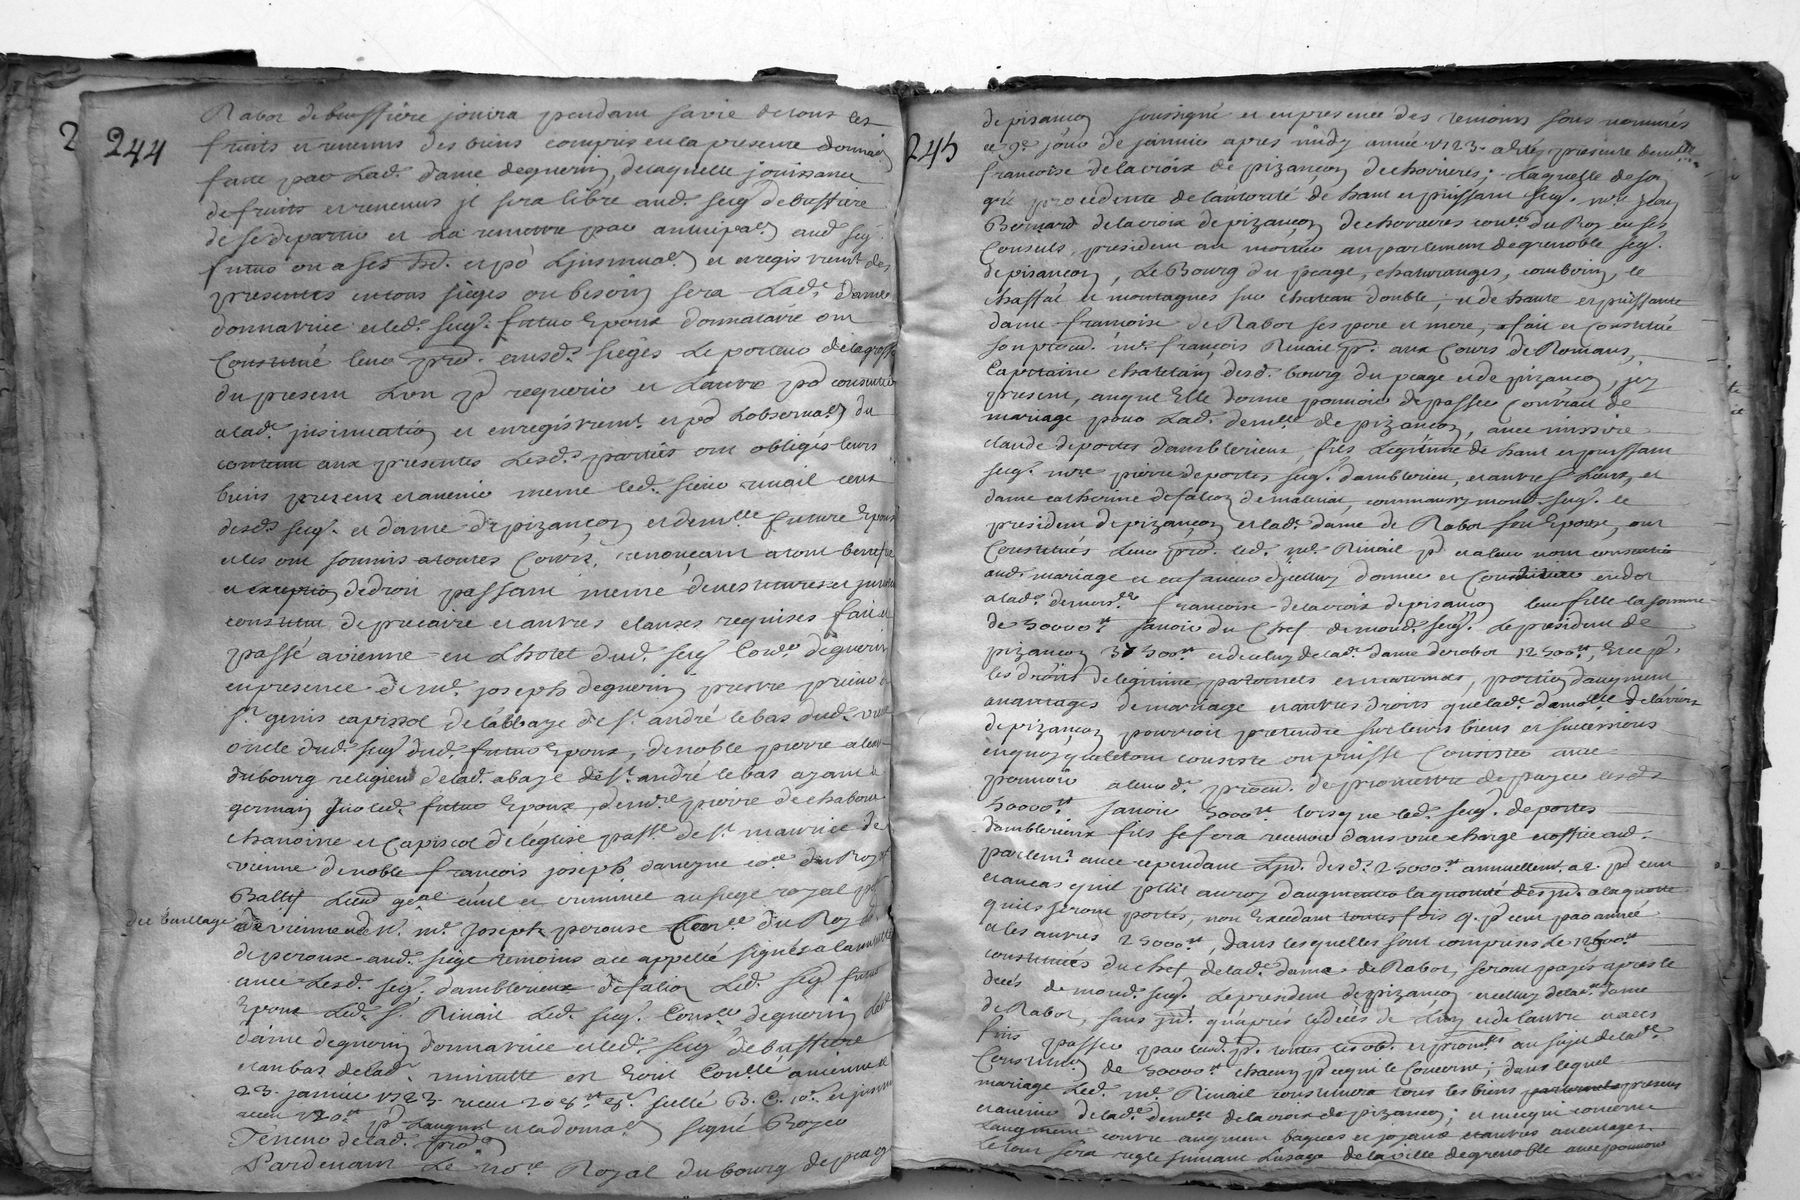 244
Rabot de bussiere jouira pendant sa vie de tous les
fruits et revenus des biens compris en la presente donnaõn
faite par Lad. dame deguerin, de laquelle jouissance
de fruits et revenus il sera libre aud. seigr debussiere
de se departir et La remettre par anticipaõn aud seigr.
futur ou a ses hed. et pr Ljnsinuaõn et enregistremt des
presentes en tous sieges ou besoin sera Lade. dame
donnatrice et led. seigr. futur Epoux donnataire ont
Constitué leur prod. ausds. sieges Le porteur de la grosse
du present Lun pr requerir et Lautre pr consentir
a lade. jnsinuation et enregistremt. et pr Lobservaõn du
contenu aux presentes Lesds. parties ont obligés leurs
biens presens et avenir meme led. sieur rivail ceux
desds seigr. et dame de pizançon et demlle future Epouse
et les ont soumis a toutes Cours, renonçant a tout benefice
et exception de droit passant meme
constitut de precaire et autres clauses requises fait et
passé a vienne en Lhotel dud. seigr Coner deguerin
en presence de mre. joseph deguerin prestre prieur de
st. genis capiscol de labbaye de st. andré le bas dud. vienne
oncle dud. seigr dud. futur Epoux, de noble pierre
dubourg religieux de lad. abaye de st. andré le bas
germain dud. futur Epoux, de mre pierre de chabons
chanoine et Capiscol de léglise de st. maurice de
vienne de noble françois joseph dauvergne du Roy
Ballif Lieut géal civil et criminel au siege royal
du bailliage
de vienne et de Nt. mr. joseph perouse du Roy
de perouse aud. siege temoins ace appellé signés a la minutte
avec Lesds. seigr. damblerieux de falion Led. seigr futur
Epoux Led. sr. Rivail Led. seigr. Coner deguerin Lade
dame deguerin donnatrice et led. seigr debussiere
et au bas de lad. minutte est Ecrit Conlle a vienne le
23. janvier 1723. receu
receu 120tt pr Laugmt et la donnaõn signé Royer
Teneur de lad. prode
Pardevant Le nore Royal du bourg de peage
245
de pisançon soussigné et en presence des temoins sous nommés
ce 9e jour de janvier apres midy année 1723. a Eté presente demlle
françoise de la croix de pizançon de chevrieres; Laquelle de son
gré procedente de lautorité de haut et puissant seigr. mre jean
Bernard de la croix de pizançon de chevrieres coner du Roy en ses
Conseils, president au mortier au parlement de grenoble seigr.
de pisançon, Le Bourg du peage, chaturanges, comboin, le
chaffal et montagnes sur chateau double, et de haute et puissante
dame françoise de Rabot ses pere et mere, a fait et constitué
son procur. mr. françois Rivail pr. aux Cours de Romans,
Capitaine chatelain desd. bourg du peage et de pizançon, jcy
present, auquel Elle donne pouvoir de passer Contrat de
mariage pour Lade. demlle de pizançon, avec messire
claude de portes damblerieux, fils Legitime de haut et puissant
seigr. mre pierre de portes seigr. damblerieu, et autres Lieux, et
dame catherine de falion comme aussy mond. seigr. le
president de pizançon et lade dame de Rabot son Epouse, ont
Constitués Leur prod. led. mr. Rivail pr et a leur nom consentir
aud. mariage et en faveur djcelluy donner et Constituer en dot
a lade. demoislle françoise de la croix de pisançon leur fille la somme
de 50000tt. savoir du Chef de mond. seigr. Le president de
pizançon 37500tt. et de celuy de lade. dame de rabot 12500tt,
les droits de legitime paternels et maternels, portion daugment
avantages de mariage et autres droits que lade. damoiselle de la croix
de pizançon pourroit pretendre sur leurs biens et successions
en quoy que le tout consiste ou puisse Consister avec
pouvoir a leurd. procur. de promettre de payer lesds
50000tt savoir lorsque led. seigr. de portes
damblerieux fils se fera recevoir dans une charge et office aud.
parlemt avec cependant Ljnt. desds. 25000tt annuellemt. a 2. pr cent
et au cas qu'il daugmenter la quotité des jnt. a la quotte
quils seront portés, non Excedant toutes fois 4. pr cent par année
et les autres 25000tt, dans lesquelles sont comprises Le 12500tt
constitués du chef de lade dame de Rabot, seront payés apres le
decés de mond. seigr. Le president de pizançon et celluy de lade. dame
de Rabot, sans jnt. qu'aprés le decés de Lun et de lautre et a ces
fins passer par led. pr. toutes les obl. et promes. au sujet de lade
Constituõn de 50000tt chacun pr ce qui le concerne; dans lequel
mariage Led. mr. Rivail constituera tous les biens presens
et avenir de lade. demlle de la croix de pizançon; et en ce qui concerne
Laugment contre augment bagues et joyaux et autres avantages
Le tout sera reglé suivant Lusage de la ville de grenoble avec pouvoir